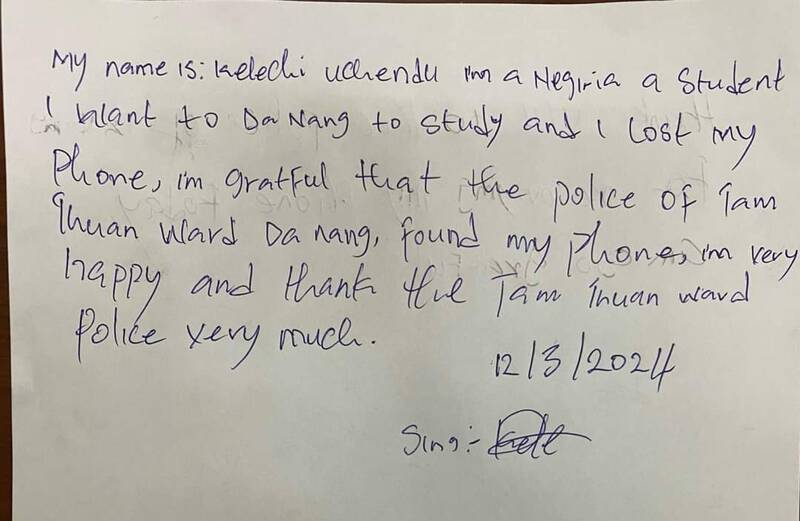 My name is: Kelechi Uchendu im a Negiria a Student
I Want to Da Nang to study and I Lost my
Phone, i'm gratful that the police of Tam
Thuan Ward Da nang, found my phone, i'm very
happy and thank the Tam Thuan ward
Police very much.
12/3/2024
Sing:-